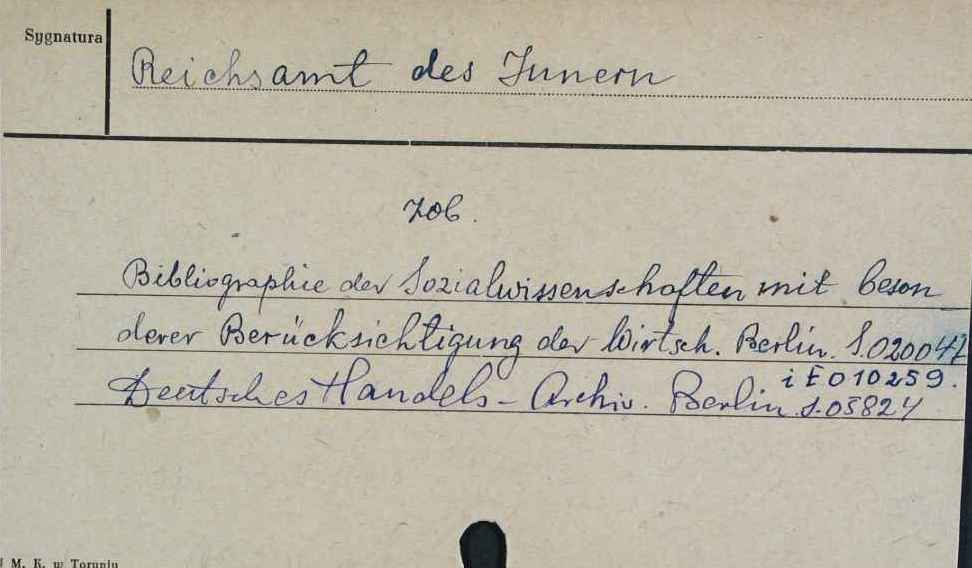 Sygnatura
Reichsamt des Innern
zob.
Bibliographie der Sozialwissenschaften mit beson
derer Berücksichtigung der Wirtsch. Berlin. S.020047
i E 010259.
Deutsches Handels-Archiv. Berlin S.03824
M. K. w Toruniu